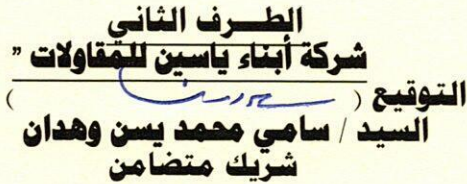 الطرف الثاني
شركة أبناء ياسين للمقاولات "
التوقيع (              )
السيد / سامي محمد يسن وهدان
شريك متضامن